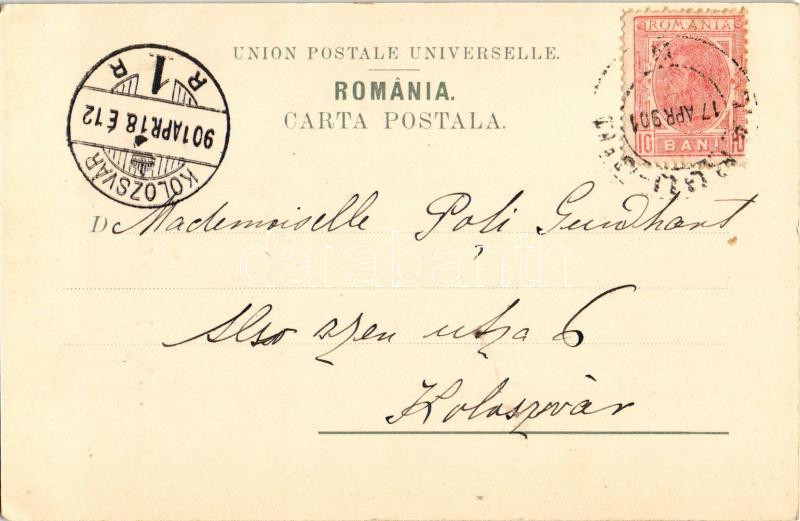 UNION POSTALE UNIVERSELLE.
ROMÂNIA.
CARTA POSTALA.
KOLOZSVÁR
901 APR 18 É 12
R 1 R
ROMANIA
10 BANI 10
17 APR 901
D Mademoiselle Poli Gundhart
Also szen utza 6
Kolozsvár
darabanth